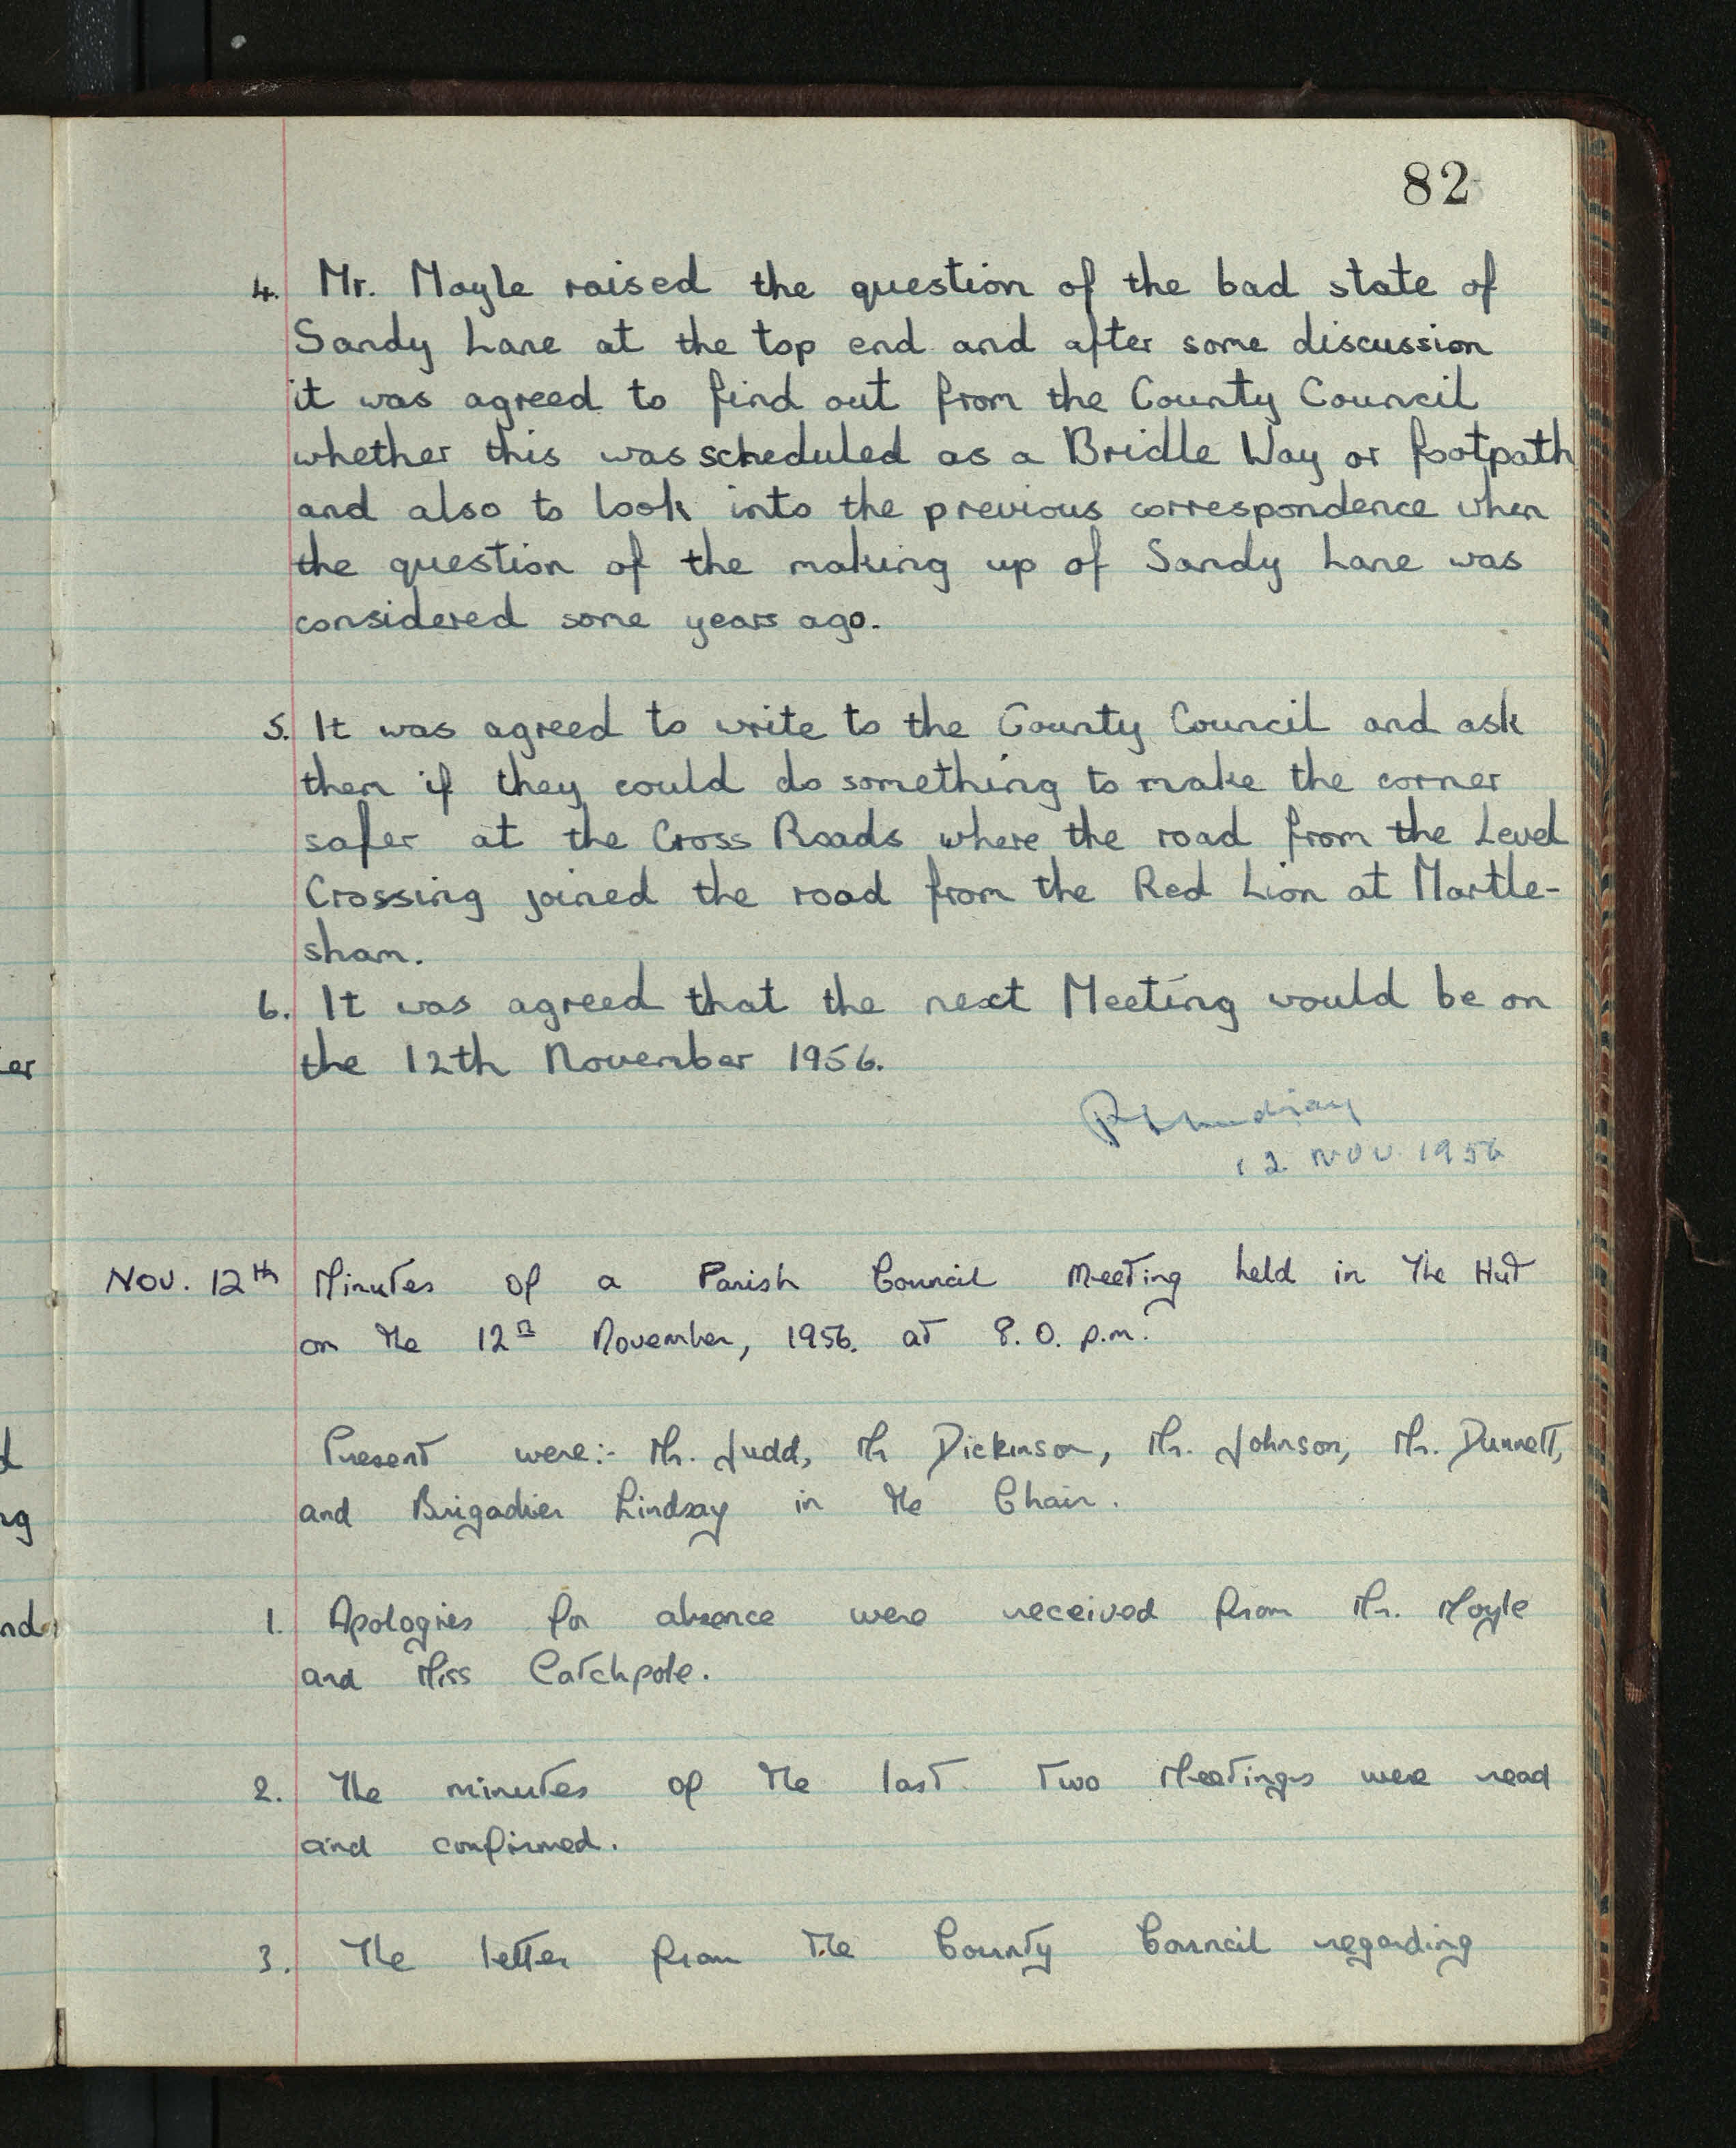 82
4. Mr. Moyle raised the question of the bad state of
Sandy Lane at the top end and after some discussion
it was agreed to find out from the County Council
whether this was scheduled as a Bridle Way or footpath
and also to look into the previous correspondence when
the question of the making up of Sandy Lane was
considered some years ago.
5. It was agreed to write to the County Council and ask
them if they could do something to make the corner
safer at the Cross Roads where the road from the Level
Crossing joined the road from the Red Lion at Martle-
sham.
6. It was agreed that the next Meeting would be on
the 12th November 1956.
12 NOV. 1956
Nov. 12th Minutes of a Parish Council Meeting held in The Hut
on the 12th November, 1956. at 8.0. p.m.
Present were:- Mr. Judd, Mr Dickinson, Mr. Johnson, Mr. Dunnett,
and Brigadier Lindsay in the Chair.
1. Apologies for absence were received from Mr. Moyle
and Miss Catchpole.
2. The minutes of the last two Meetings were read
and confirmed.
3. The letter from the County Council regarding
er
d
ng
nd